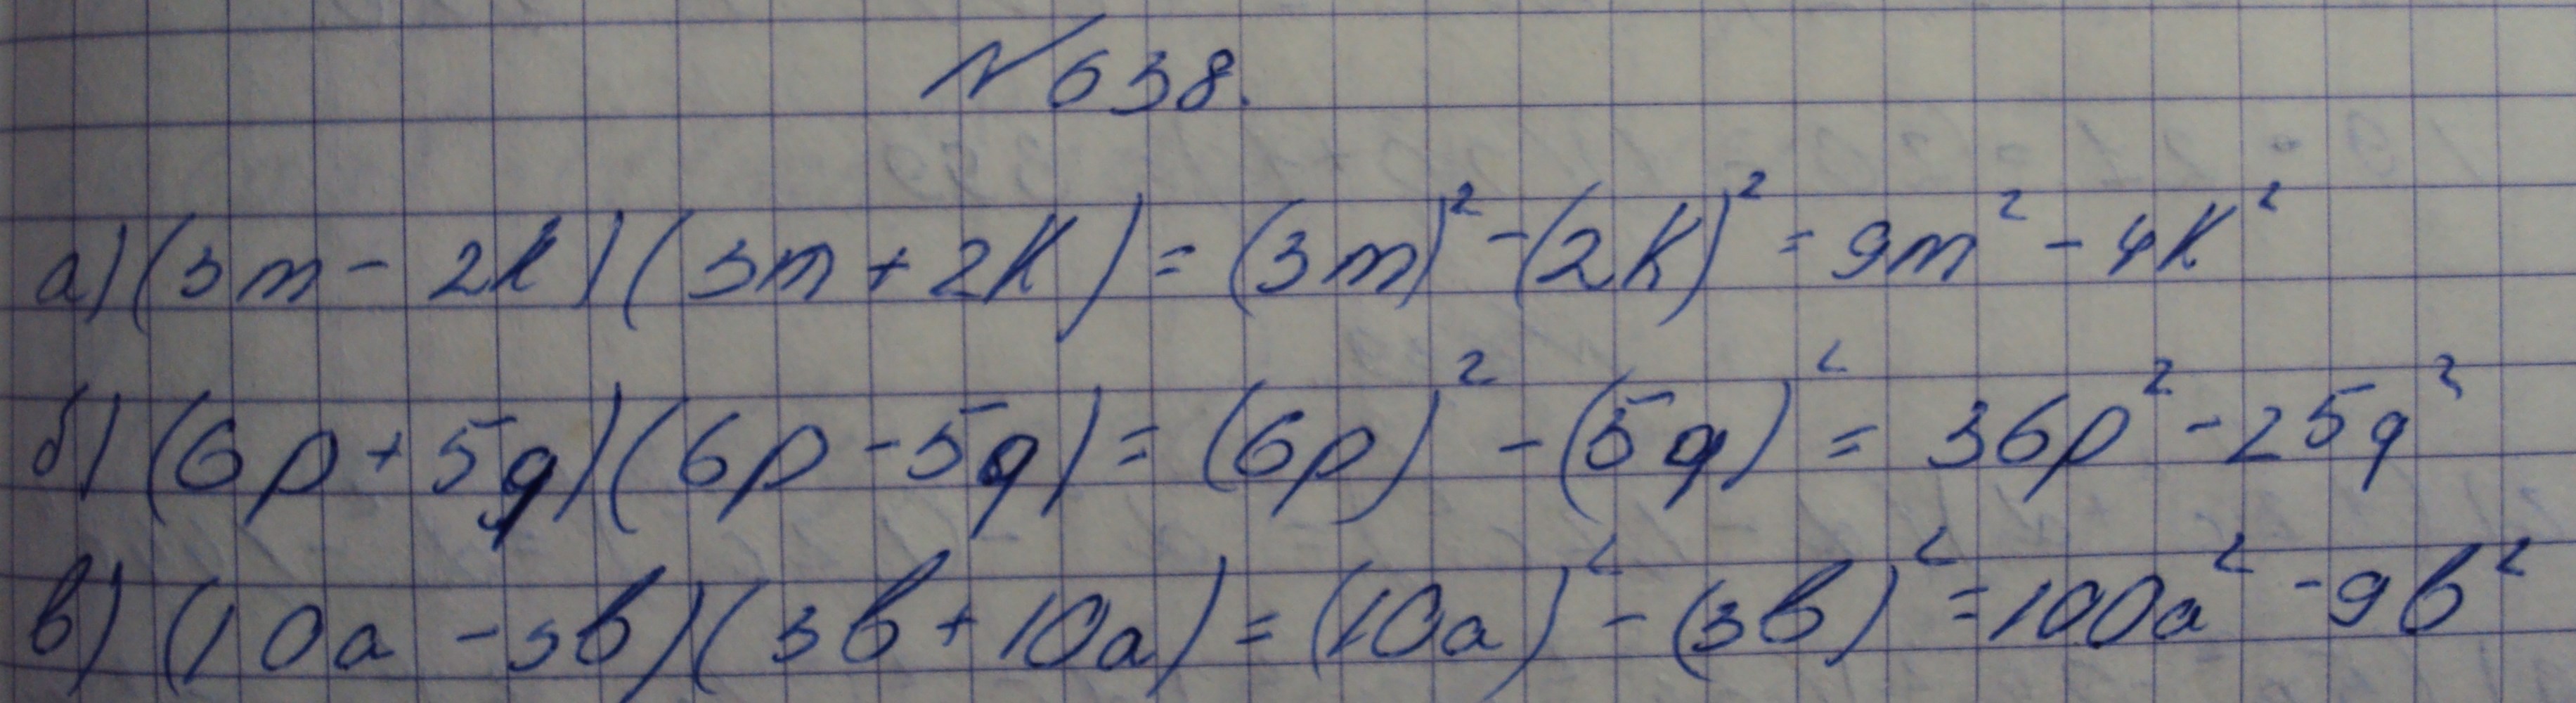 № 638.
а) (3m - 2k) (3m + 2k) = (3m)² - (2k)² = 9m² - 4k²
б) (6p + 5q) (6p - 5q) = (6p)² - (5q)² = 36p² - 25q²
в) (10a - 3b) (3b + 10a) = (10a)² - (3b)² = 100a² - 9b²